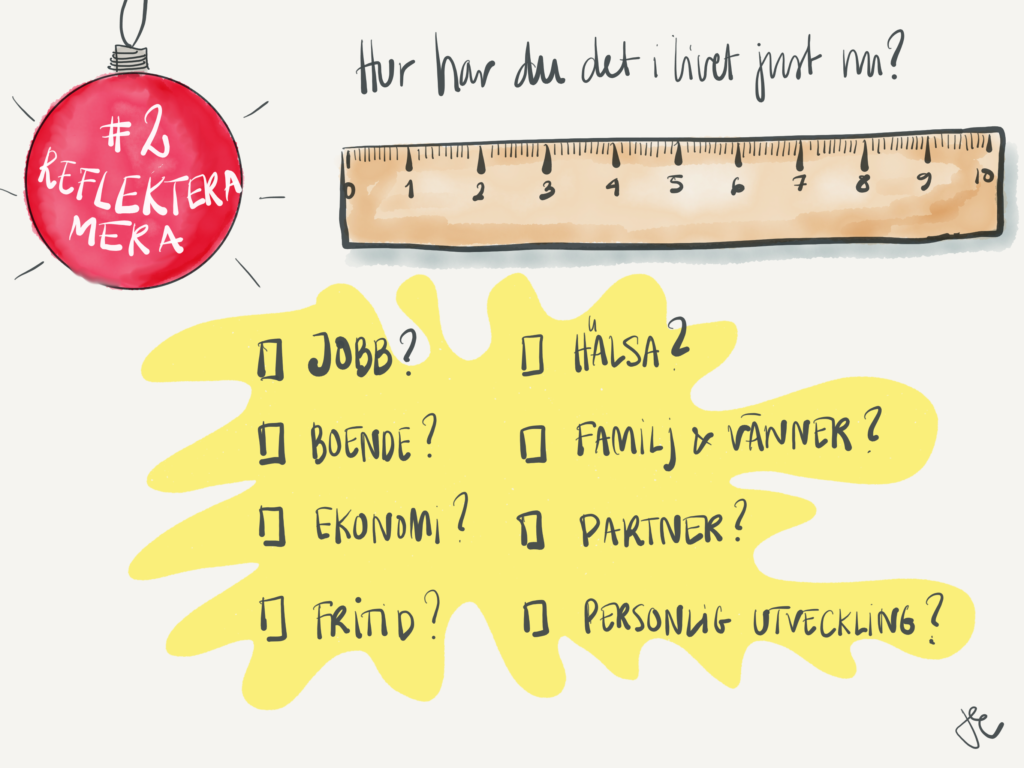 #2
REFLEKTERA
MERA
Hur har du det i livet just nu?
0 1 2 3 4 5 6 7 8 9 10
JOBB?
HÄLSA?
BOENDE?
FAMILJ & VÄNNER?
EKONOMI?
PARTNER?
FRITID?
PERSONLIG UTVECKLING?